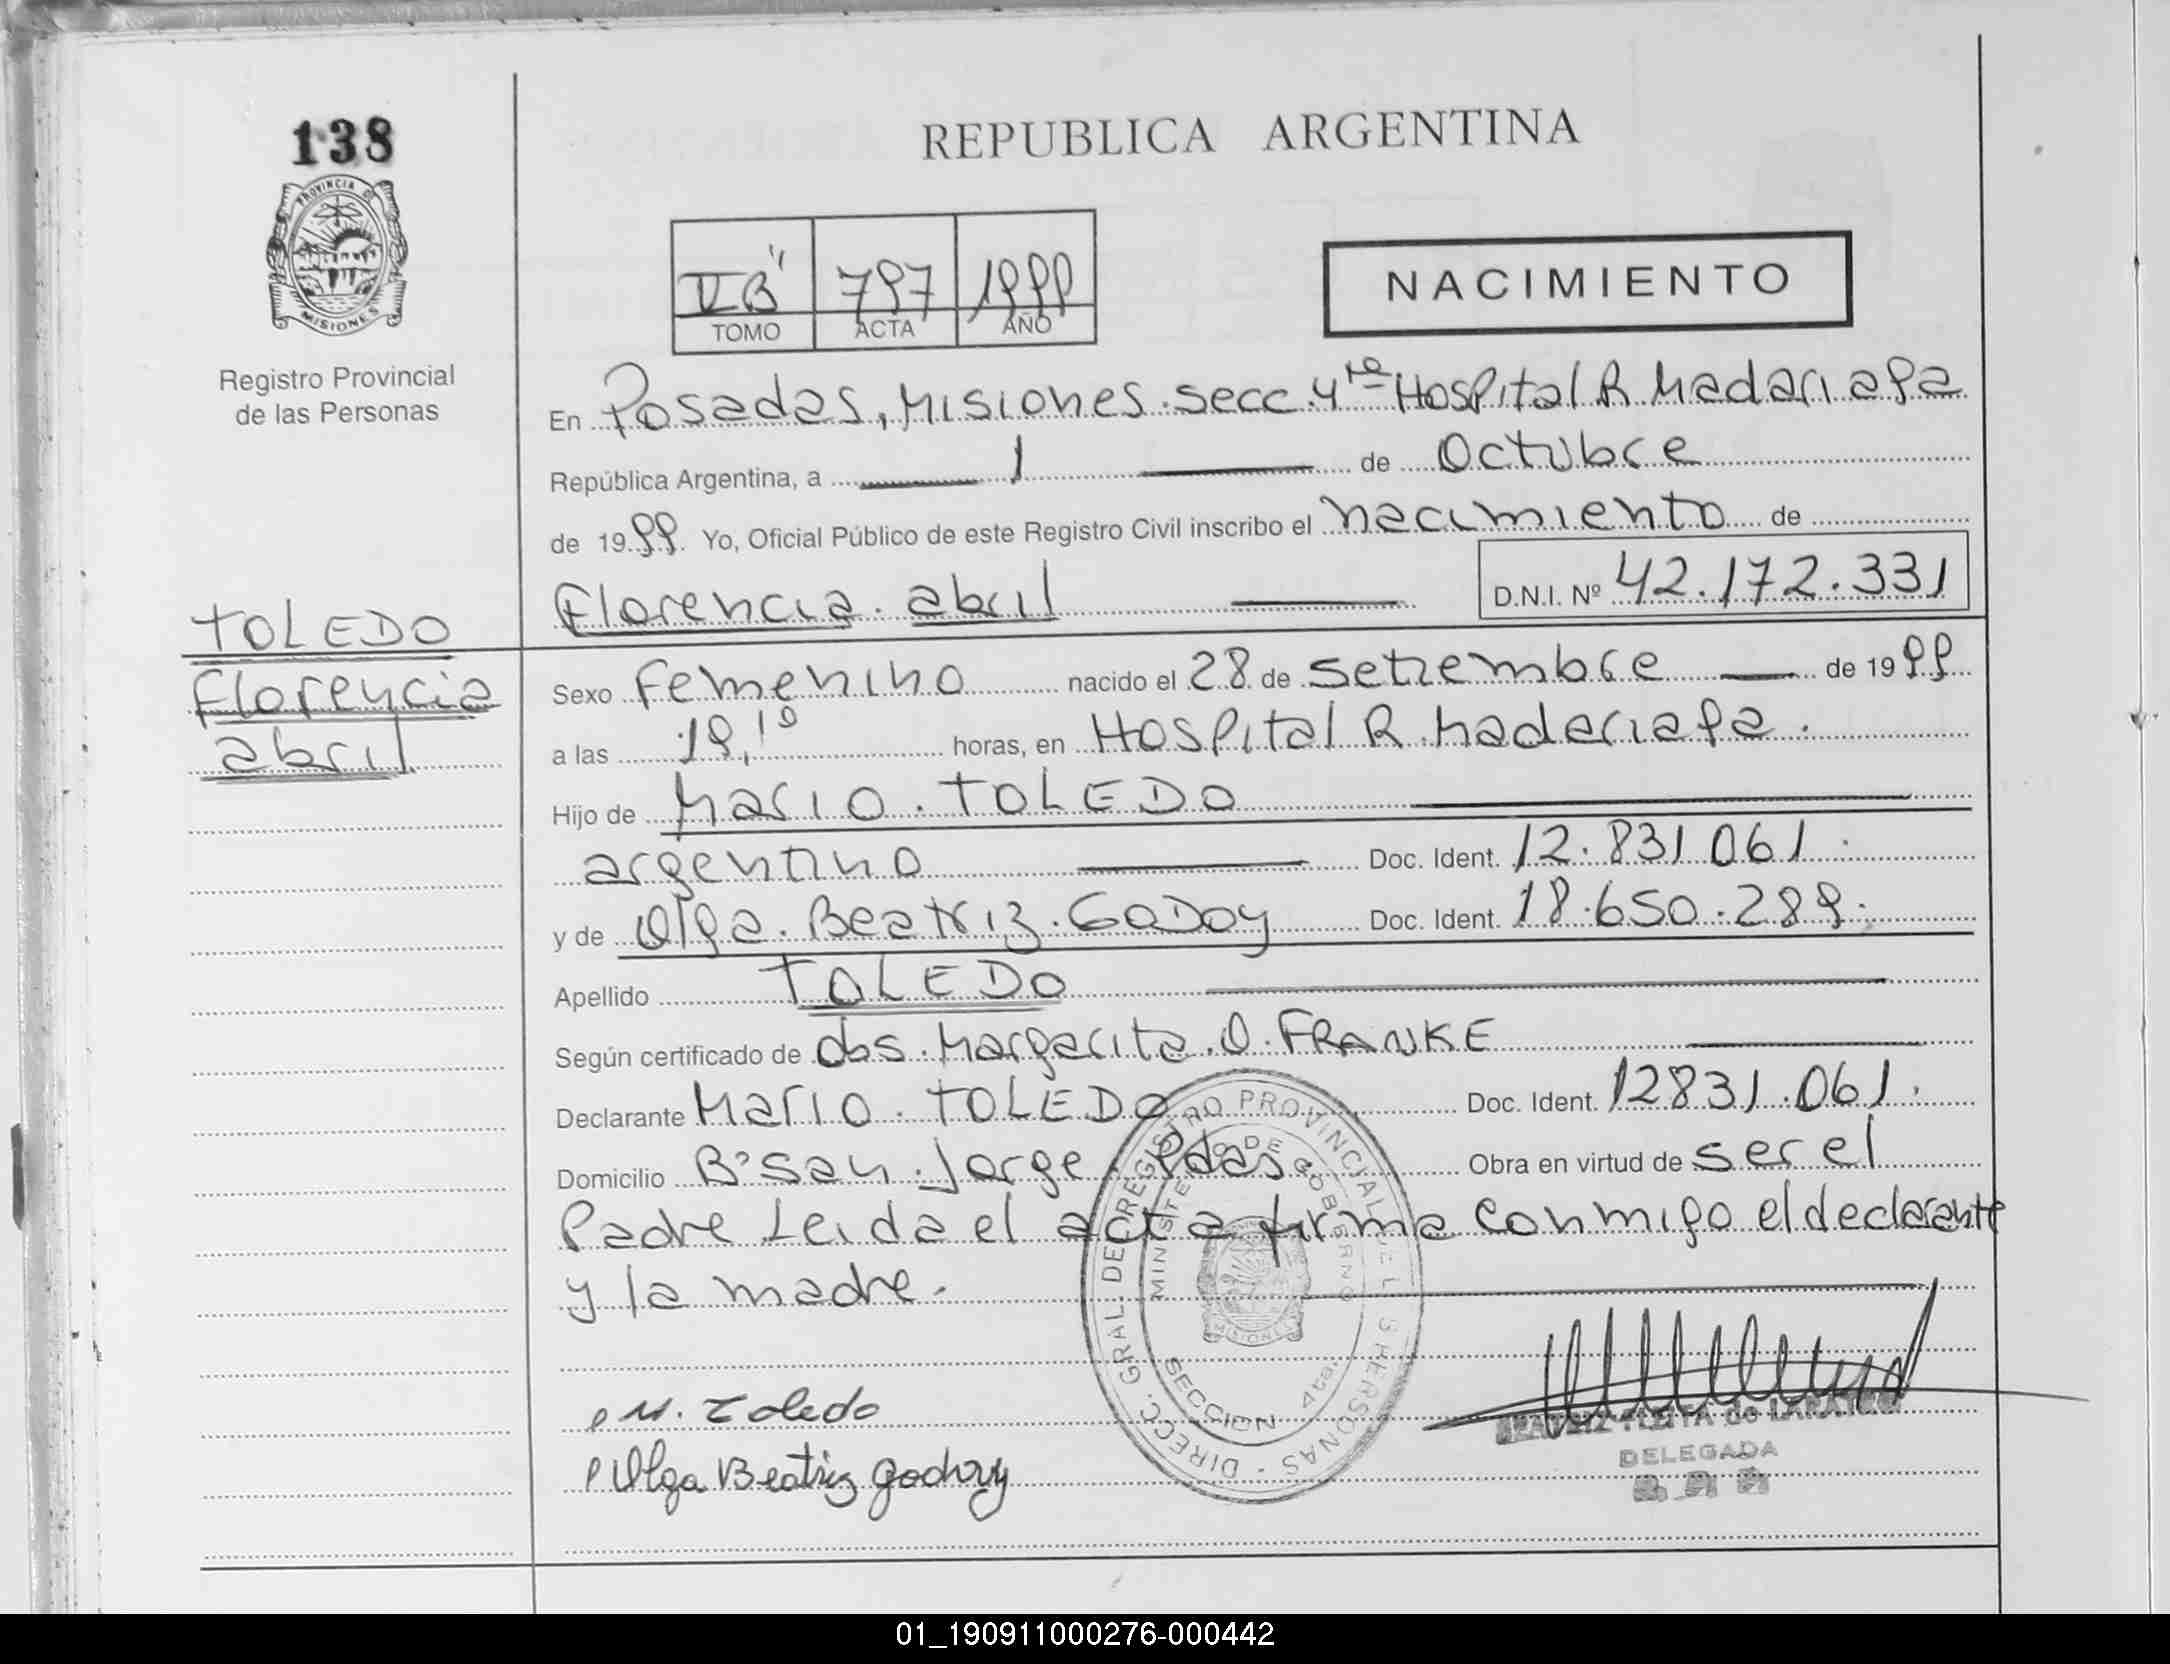 138
PROVINCIA DE
MISIONES
Registro Provincial
de las Personas
REPUBLICA ARGENTINA
VB" 797 1999
TOMO ACTA AÑO
NACIMIENTO
En Posadas, Misiones. secc. 4ta Hospital R Madariaga
República Argentina, a 1 de Octubre
de 1999. Yo, Oficial Público de este Registro Civil inscribo el nacimiento de
Florencia abril D.N.I. Nº 42.172.331
TOLEDO
Florencia
abril
Sexo Femenino nacido el 28 de setiembre de 1999
a las 19,10 horas, en Hospital R. Madariaga.
Hijo de Mario. TOLEDO
argentino Doc. Ident. 12.831 061.
y de Olga. Beatriz. GODOY Doc. Ident. 18.650.289.
Apellido TOLEDO
Según certificado de obs. Margarita. O. FRANKE
Declarante Mario. TOLEDO Doc. Ident. 12831.061.
Domicilio Bº San Jorge. Pdas. Obra en virtud de ser el
Padre Leida el acta firma conmigo el declarante
y la madre.
DIRECC. GRAL. DE REGISTRO PROVINCIAL DE LAS PERSONAS
MINISTERIO DE GOBIERNO
MISIONES
SECCION 4ta.
M. Toledo
Olga Beatriz Godoy
DELEGADA
01_190911000276-000442